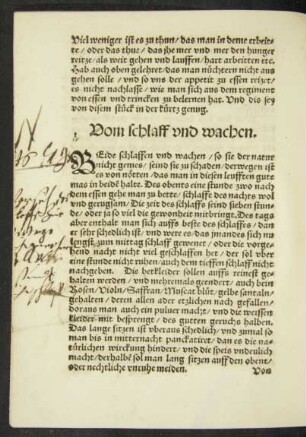 Viel weniger ist es zu thun / das man in deme erbeit-
te / oder das thue / das jhe mer vnd mer den hunger
reitze / als weit gehen vnd lauffen / hart arbeitten etc.
Hab auch oben gelehret / das man nüchtern nicht aus
gehen solle / vnd so vns der appetit zu essen reizet /
es nicht nachlasse / wie man sich aus dem regiment
von essen vnd trincken zu belernen hat. Vnd dis sey
von disem stück in der kürtz genug.
Vom schlaff vnd wachen.
BEide schlaffen vnd wachen / so sie der natur
nicht gemes / seind sie zu schaden / derwegen ist
es von nöten / das man in diesen leufften gute
mas in beide halte. Des obents eine stunde zwo nach
dem essen gehe man zu bette / schlaffe des nachts wol
vnd gerugsam / Die zeit des schlaffs seind sieben stun-
de / oder ja so viel die gewonheit mitbringt. Des tags
aber enthalt man sich auffs beste des schlaffes / dan
er sehr schedlich ist / vnd were es / das jmandes sich zu
lengst zum mittag schlaff gewenet / oder die vorge-
hend nacht nicht viel geschlaffen het / der sol vber
eine stunde nicht ruhen / auch dem tieffen schlaff nicht
nachgeben. Die betkleider sollen auffs reinest ge-
halten werden / vnd mehrmals geendert / auch bein
Rosen / Violn / Saffran / Muscat blüt / gelbe santaln
gehalten / deren allen oder etzlichen nach gefallen /
doraus man auch ein puluer macht / vnd die weissen
kleider mit besprengt / des gutten geruchs halben.
Das lange sitzen ist vberaus schedlich / vnd zumal so
man bis in mitternacht panckatiret / dan es die na-
türlichen wirckung hindert / vnd die speis vndeulich
macht / derhalbē sol man lang sitzen auff den obent /
oder nechtliche vnruhe meiden.
Von